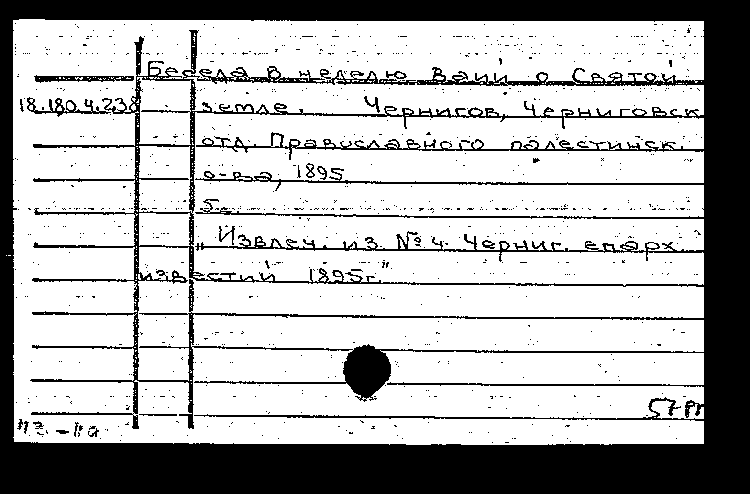 Беседа в неделю Ваий о Святой
18.180.4.238 земле. Чернигов, Черниговск.
отд. Православного палестинск.
о-ва, 1895.
5 с.
„Извлеч. из № 4. Черниг. епарх.
известий 1895г."
57